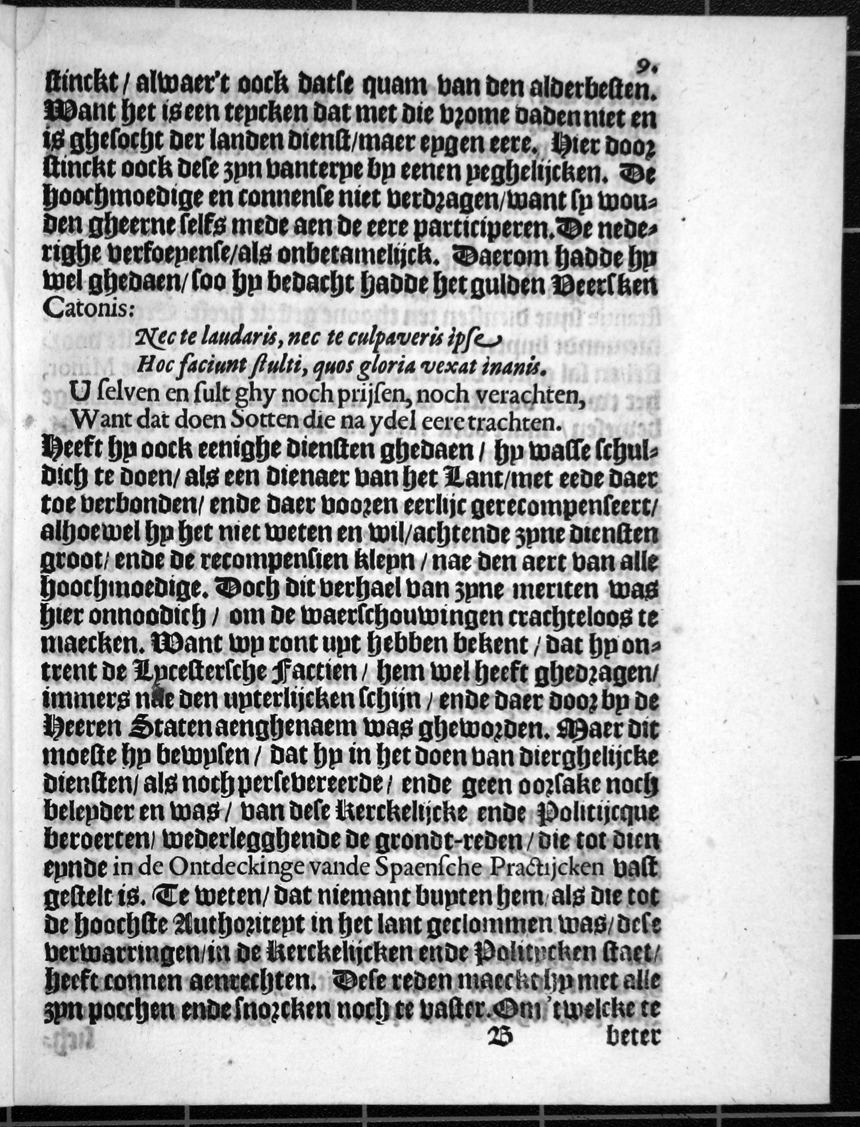 9.
stinckt / alwaer't oock datse quam van den alderbesten.
Want het is een teycken dat met die vrome daden niet en
is ghesocht der landen dienst/maer eygen eere. Hier door
stinckt oock dese zyn vanterye by eenen yeghelijcken. De
hoochmoedige en connense niet verdragen/want sy wou-
den gheerne selfs mede aen de eere participeren. De nede-
righe verfoeyense/als onbetamelijck. Daerom hadde hy
wel ghedaen/ soo hy bedacht hadde het gulden Veersken
Catonis:
Nec te laudaris, nec te culpaveris ipse
Hoc faciunt stulti, quos gloria vexat inanis.
U selven en sult ghy noch prijsen, noch verachten,
Want dat doen Sotten die na ydel eere trachten.
Heeft hy oock eenighe diensten ghedaen / hy wasse schul-
dich te doen/ als een dienaer van het Lant/met eede daer
toe verbonden/ ende daer vooren eerlijc gerecompenseert/
alhoewel hy het niet weten en wil/achtende zyne diensten
groot/ ende de recompensien kleyn / nae den aert van alle
hoochmoedige. Doch dit verhael van zyne meriten was
hier onnoodich / om de waerschouwingen crachteloos te
maecken. Want wy ront uyt hebben bekent / dat hy on-
trent de Lycestersche Factien / hem wel heeft ghedragen/
immers nae den uyterlijcken schijn / ende daer door by de
Heeren Staten aenghenaem was gheworden. Maer dit
moeste hy bewysen / dat hy in het doen van dierghelijcke
diensten/ als noch persevereerde / ende geen oorsake noch
beleyder en was / van dese Kerckelijcke ende Politijcque
beroerten/ wederlegghende de grondt-reden / die tot dien
eynde in de Ontdeckinge vande Spaensche Practijcken vast
gestelt is. Te weten/ dat niemant buyten hem/ als die tot
de hoochste Authoriteyt in het lant geclommen was/dese
verwarringen/in de Kerckelijcken ende Politycken staet/
heeft connen aenrechten. Dese reden maeckt hy met alle
zyn pocchen ende snorcken noch te vaster. Om 'twelcke te
B beter